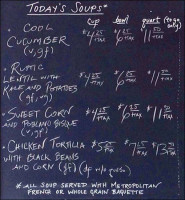 TODAY'S SOUPS*
cup bowl quart (to go only)
• COOL CUCUMBER (v,gf) $4 +TAX $6 +TAX $11 +TAX
• RUSTIC LENTIL WITH KALE AND POTATOES (gf, vg) $4 +TAX $6 +TAX $11 +TAX
• SWEET CORN AND POBLANO BISQUE (v, gf) $4 +TAX $6 +TAX $11 +TAX
• CHICKEN TORTILLA WITH BLACK BEANS AND CORN (gf) $5 +TAX $7 +TAX $13 +TAX
* ALL SOUP SERVED WITH METROPOLITAN
FRENCH OR WHOLE GRAIN BAGUETTE